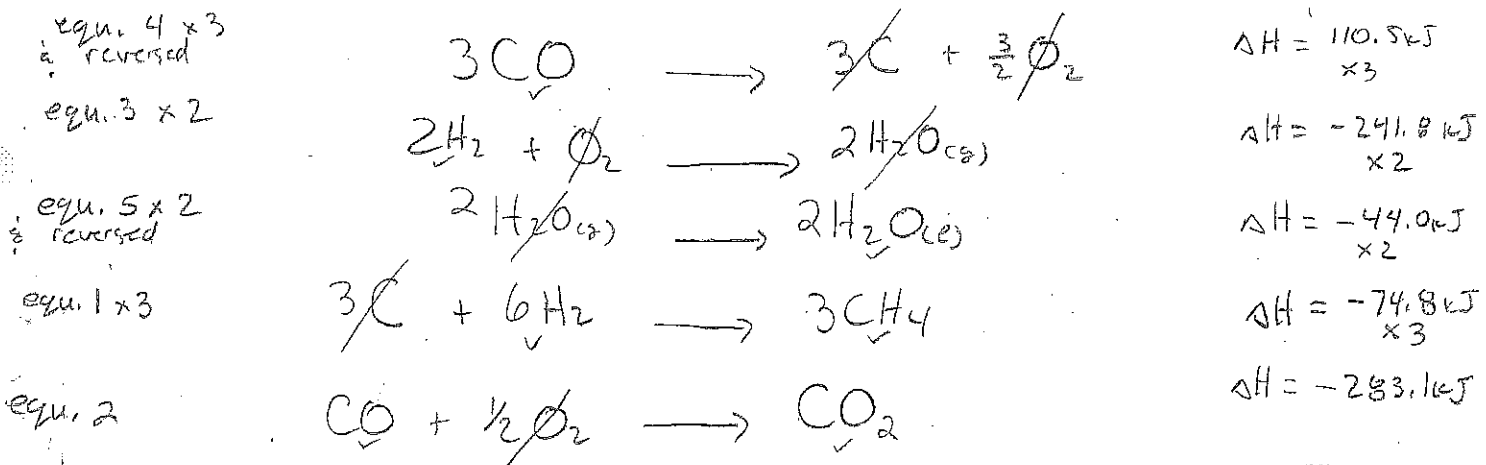 equ. 4 x 3
& reversed
3CO → 3C + 3/2 O₂
ΔH = 110.5kJ
x3
equ. 3 x 2
2H₂ + O₂ → 2H₂O(g)
ΔH = -241.8 kJ
x2
equ. 5 x 2
& reversed
2H₂O(g) → 2H₂O(ℓ)
ΔH = -44.0kJ
x2
equ. 1 x 3
3C + 6H₂ → 3CH₄
ΔH = -74.8 kJ
x3
equ. 2
CO + ½O₂ → CO₂
ΔH = -283.1kJ